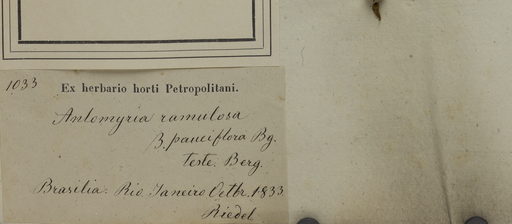 1033
Ex herbario horti Petropolitani.
Aulomyrcia ramulosa
B. pauciflora Bg.
teste. Berg.
Brasilia: Rio Janeiro Octbr. 1833
Riedel